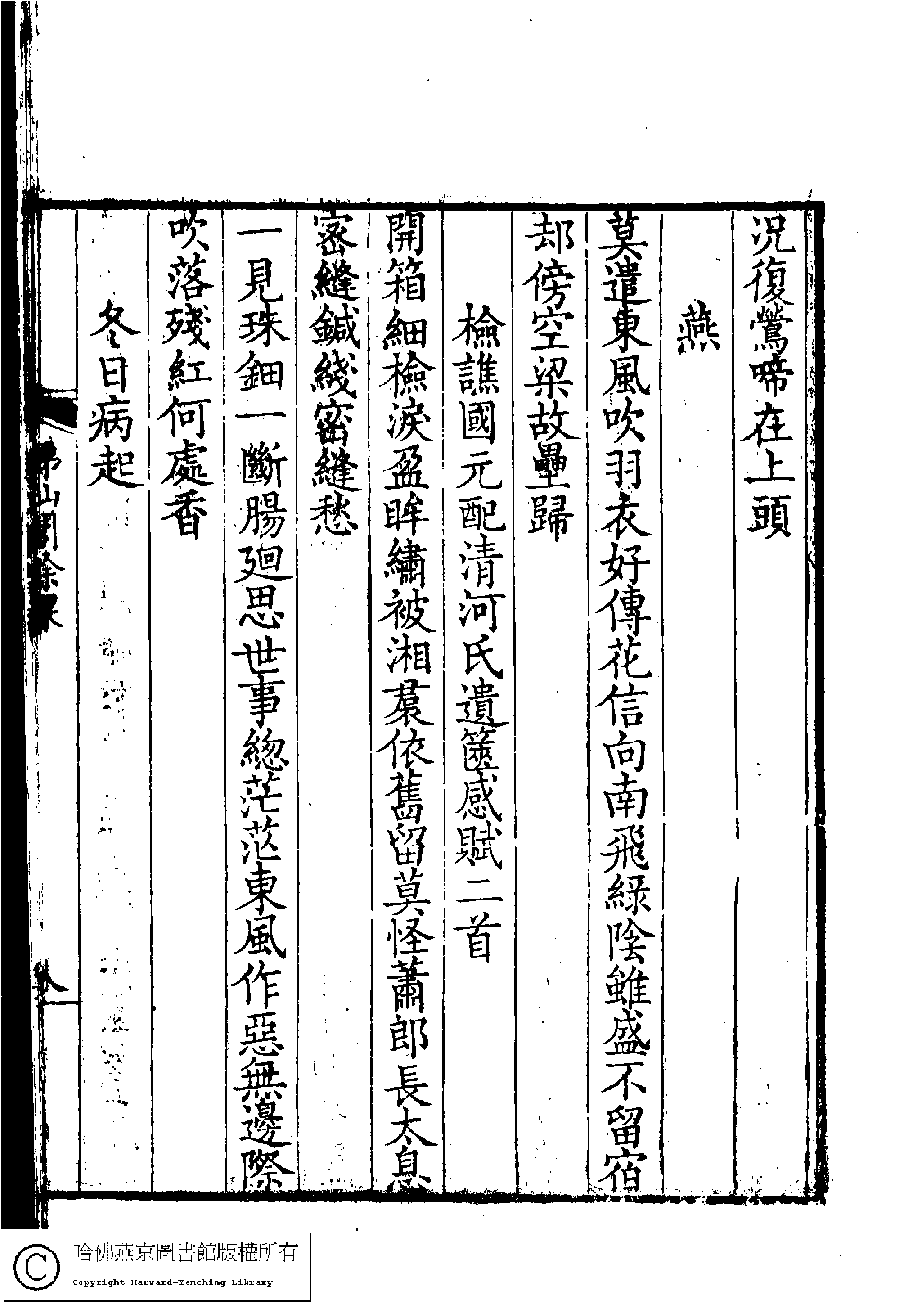 況復鶯啼在上頭
燕
莫遣東風吹羽衣好傳花信向南飛綠陰雖盛不留宿
却傍空梁故壘歸
檢譙國元配清河氏遺篋感賦二首
開箱細檢淚盈眸繡被湘裠依舊留莫怪蕭郎長太息
密縫鍼綫密縫愁
一見珠鈿一斷腸廻思世事緫茫茫東風作惡無邊際
吹落殘紅何處香
冬日病起
八
哈佛燕京圖書館版權所有
Copyright Harvard-Yenching Library